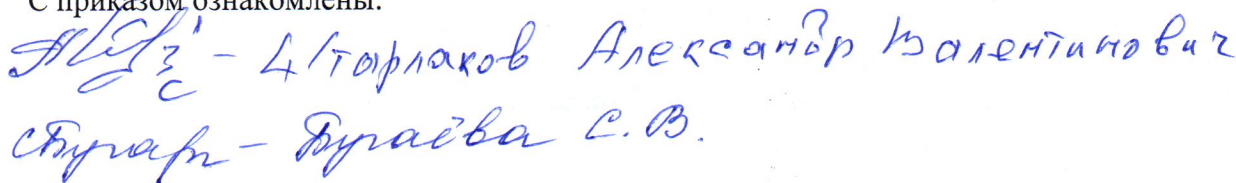 С приказом ознакомлены:
- Чтарлаков Александр Валентинович
- Бугаёва С.В.